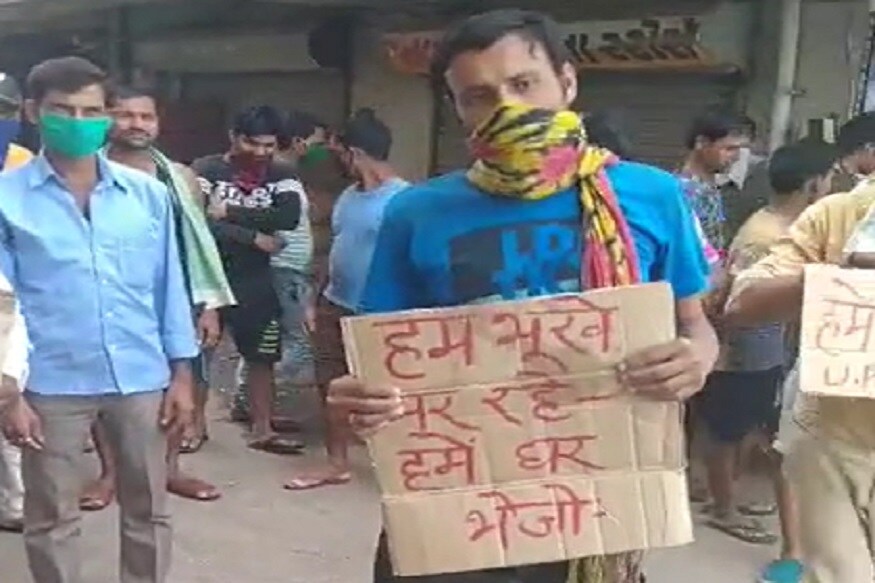 हम भूखे
मर रहे-
हमें घर
भेजो-
हमे
U.P